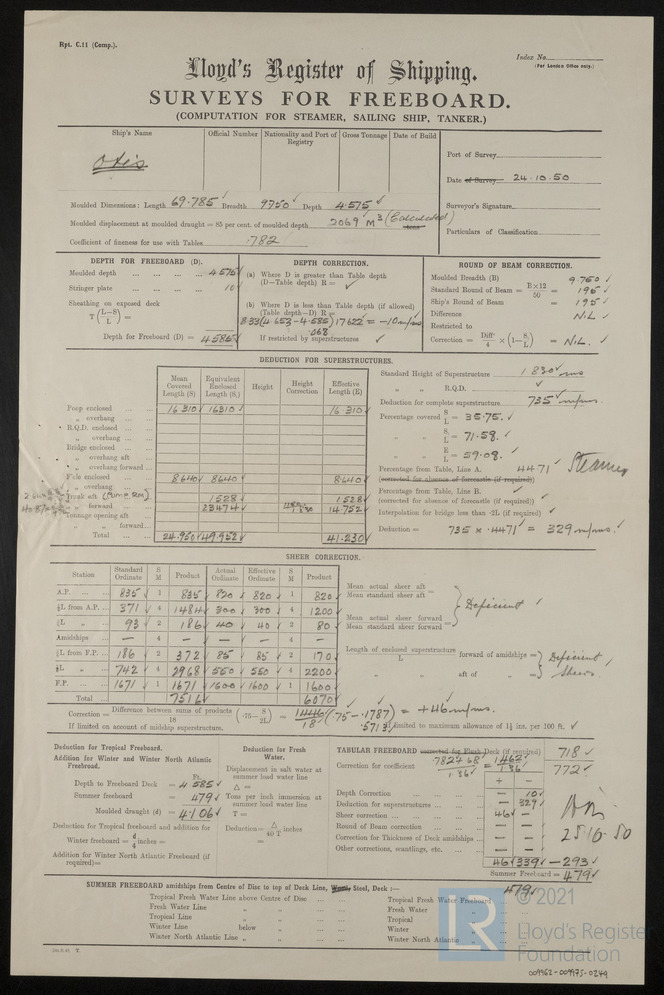 Rpt. C.11 (Comp.).
Index No.
(For London Office only.)
Lloyd's Register of Shipping.
SURVEYS FOR FREEBOARD.
(COMPUTATION FOR STEAMER, SAILING SHIP, TANKER.)
Ship's Name Official Number Nationality and Port of Registry Gross Tonnage Date of Build
Otis
Port of Survey
Date of Survey 24.10.50
Surveyor's Signature
Particulars of Classification
Moulded Dimensions: Length 69.785 Breadth 9750 Depth 4.575
Moulded displacement at moulded draught = 85 per cent. of moulded depth 2069 M³ (Calculated)
Coefficient of fineness for use with Tables .782
DEPTH FOR FREEBOARD (D).
Moulded depth 4575
Stringer plate 10
Sheathing on exposed deck
T (L-S/L) =
Depth for Freeboard (D) = 4585
DEPTH CORRECTION.
(a) Where D is greater than Table depth
(D—Table depth) R =
(b) Where D is less than Table depth (if allowed)
(Table depth—D) R =
8.33(4.653-4.585)17622 = -10 m/ms
.068
If restricted by superstructures
ROUND OF BEAM CORRECTION.
Moulded Breadth (B) 9.750
Standard Round of Beam = B×12/50 = 195
Ship's Round of Beam = 195
Difference NIL
Restricted to
Correction = Diffce/4 × (1-S1/L) = NIL.
DEDUCTION FOR SUPERSTRUCTURES.
Mean Covered Length (S) Equivalent Enclosed Length (S1) Height Height Correction Effective Length (E)
Poop enclosed 16 310 16310 16 310
„ overhang
R.Q.D. enclosed
„ overhang
Bridge enclosed
„ overhang aft
„ overhang forward
F'cle enclosed 8640 8640 8640
„ overhang
Trunk aft (Pump Rm) 1528 1528
„ forward 23474 14.752
Tonnage opening aft
„ forward
Total 24.950 49.952 41.230
Standard Height of Superstructure 1 830 ms
„ „ R.Q.D.
Deduction for complete superstructure 735 m/ms.
Percentage covered S/L = 35.75.
„ „ S1/L = 71.58.
„ „ E/L = 59.08.
Percentage from Table, Line A. 4471 Steamer
(corrected for absence of forecastle (if required))
Percentage from Table, Line B.
(corrected for absence of forecastle (if required))
Interpolation for bridge less than ·2L (if required)
Deduction = 735 × .4471 = 329 m/ms.
SHEER CORRECTION.
Station Standard Ordinate S M Product Actual Ordinate Effective Ordinate S M Product
A.P. 835 1 835 820 820 1 820
⅙L from A.P. 371 4 1484 300 300 4 1200
⅓L „ 93 2 186 40 40 2 80
Amidships — 4 — — — 4 —
⅓L from F.P. 186 2 372 85 85 2 170
⅙L „ 742 4 2968 550 550 4 2200
F.P. 1671 1 1671 1600 1600 1 1600
Total 7516 6070
Mean actual sheer aft
Mean standard sheer aft =
Mean actual sheer forward
Mean standard sheer forward =
Deficient
Length of enclosed superstructure forward of amidships =
L
„ aft of „ =
Deficient Sheers.
Correction = Difference between sums of products/18 (·75-S/2L) = 1446/18 (.75-.1787) = +46 m/ms.
.5713
If limited on account of midship superstructure.
If limited to maximum allowance of 1½ ins. per 100 ft.
Deduction for Tropical Freeboard.
Addition for Winter and Winter North Atlantic Freeboard.
Ft.
Depth to Freeboard Deck = 4 585
Summer freeboard = 479
Moulded draught (d) = 4106
Deduction for Tropical freeboard and addition for
Winter freeboard = d/4 inches =
Addition for Winter North Atlantic Freeboard (if required)=
Deduction for Fresh Water.
Displacement in salt water at summer load water line
△ =
Tons per inch immersion at summer load water line
T =
Deduction= △/40 T inches
=
TABULAR FREEBOARD corrected for Flush Deck (if required) 718
Correction for coefficient .782+.68/1.36 = 1.462/1.36 772
+ -
Depth Correction — 10
Deduction for superstructures — 329
Sheer correction 46 —
Round of Beam correction — —
Correction for Thickness of Deck amidships — —
Other corrections, scantlings, etc. — —
46 339 -293
Summer Freeboard = 479
25.10.50
SUMMER FREEBOARD amidships from Centre of Disc to top of Deck Line, Wood, Steel, Deck :— 479
Tropical Fresh Water Line above Centre of Disc
Fresh Water Line „
Tropical Line „
Winter Line below
Winter North Atlantic Line „
Tropical Fresh Water Freeboard
Fresh Water „
Tropical „
Winter „
Winter North Atlantic „
LR
© 2021
Lloyd's Register
Foundation
009962-009975-0249